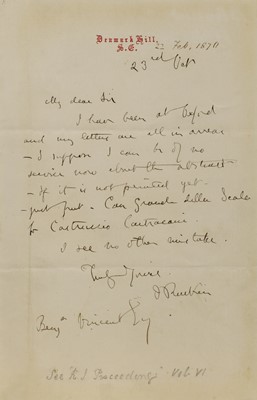 Denmark Hill,
S.E.
22 Feb, 1871
23rd Feb
My dear Sir
I have been at Oxford
and my letters are all in arrear
- I suppose I can be of no
service now about the abstract
- If it is not printed yet -
- just put - Can Grande della Scala
for Castruccio Castracani.
I see no other mistake.
Truly Yours.
J Ruskin
Benjn Vincent Esq
See R I Proceedings Vol VI